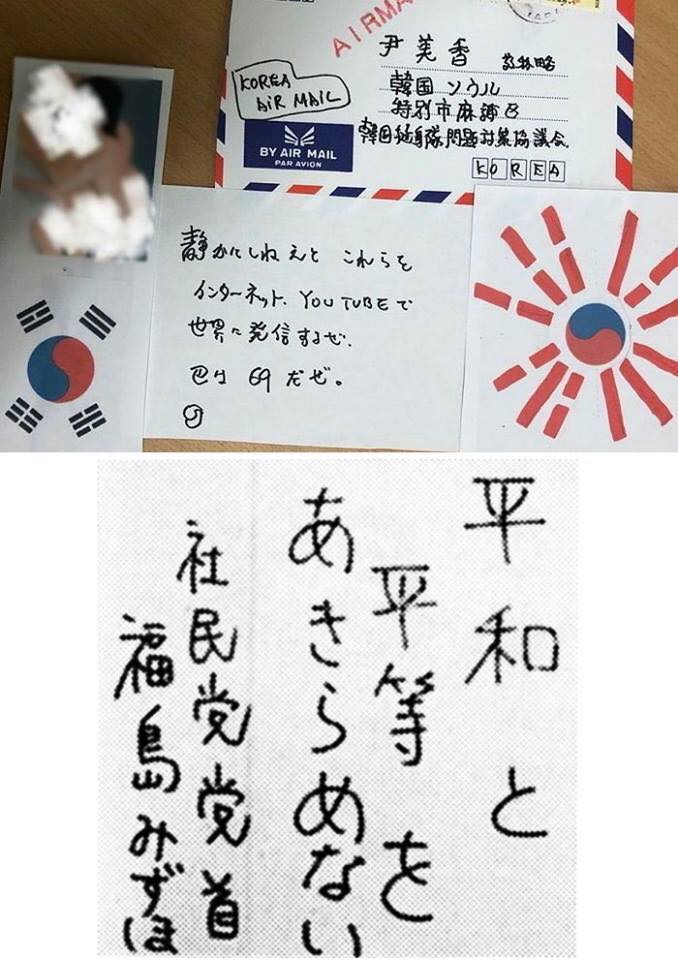 AIRMA
尹美香 敬称略
韓国ソウル
特別市麻浦区
韓国挺身隊問題対策協議会
KOREA
KOREA
AIR MAIL
BY AIR MAIL
PAR AVION
静かにしねえと これらを
インターネット、YOUTUBEで
世界に発信するぜ.
巴は 69だぜ。
平和と
平等を
あきらめない
社民党党首
福島みずほ